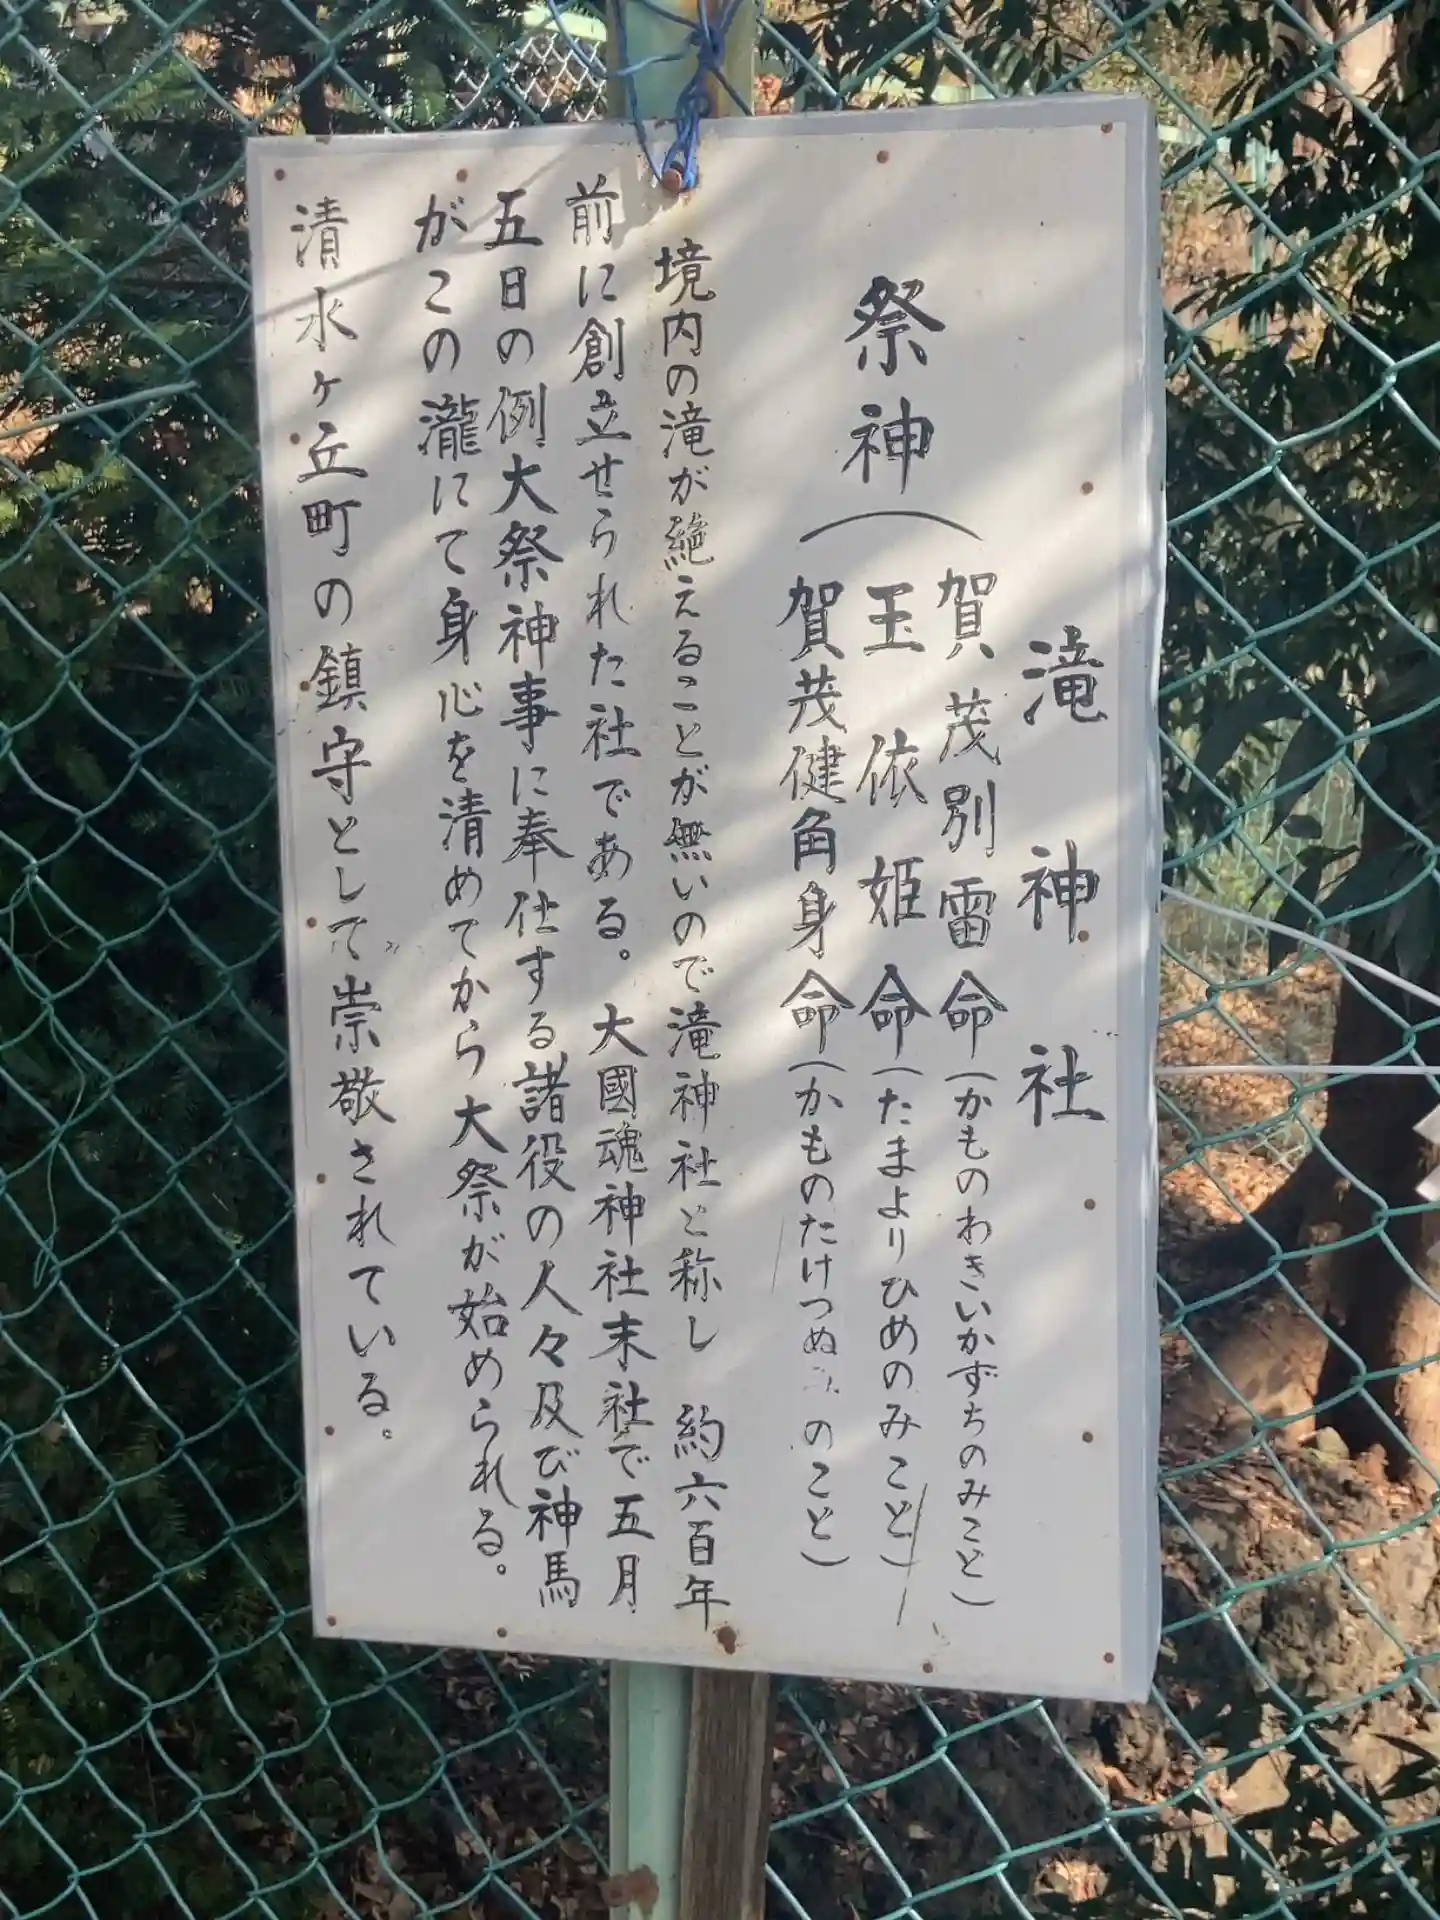 滝神社
祭神
賀茂別雷命(かものわきいかずちのみこと)
玉依姫命(たまよりひめのみこと)
賀茂健角身命(かものたけつぬ のこと)
境内の滝が絶えることが無いので滝神社と称し 約六百年
前に創立せられた社である。大國魂神社末社で五月
五日の例大祭神事に奉仕する諸役の人々及び神馬
がこの瀧にて身心を清めてから大祭が始められる。
清水ヶ丘町の鎮守として崇敬されている。